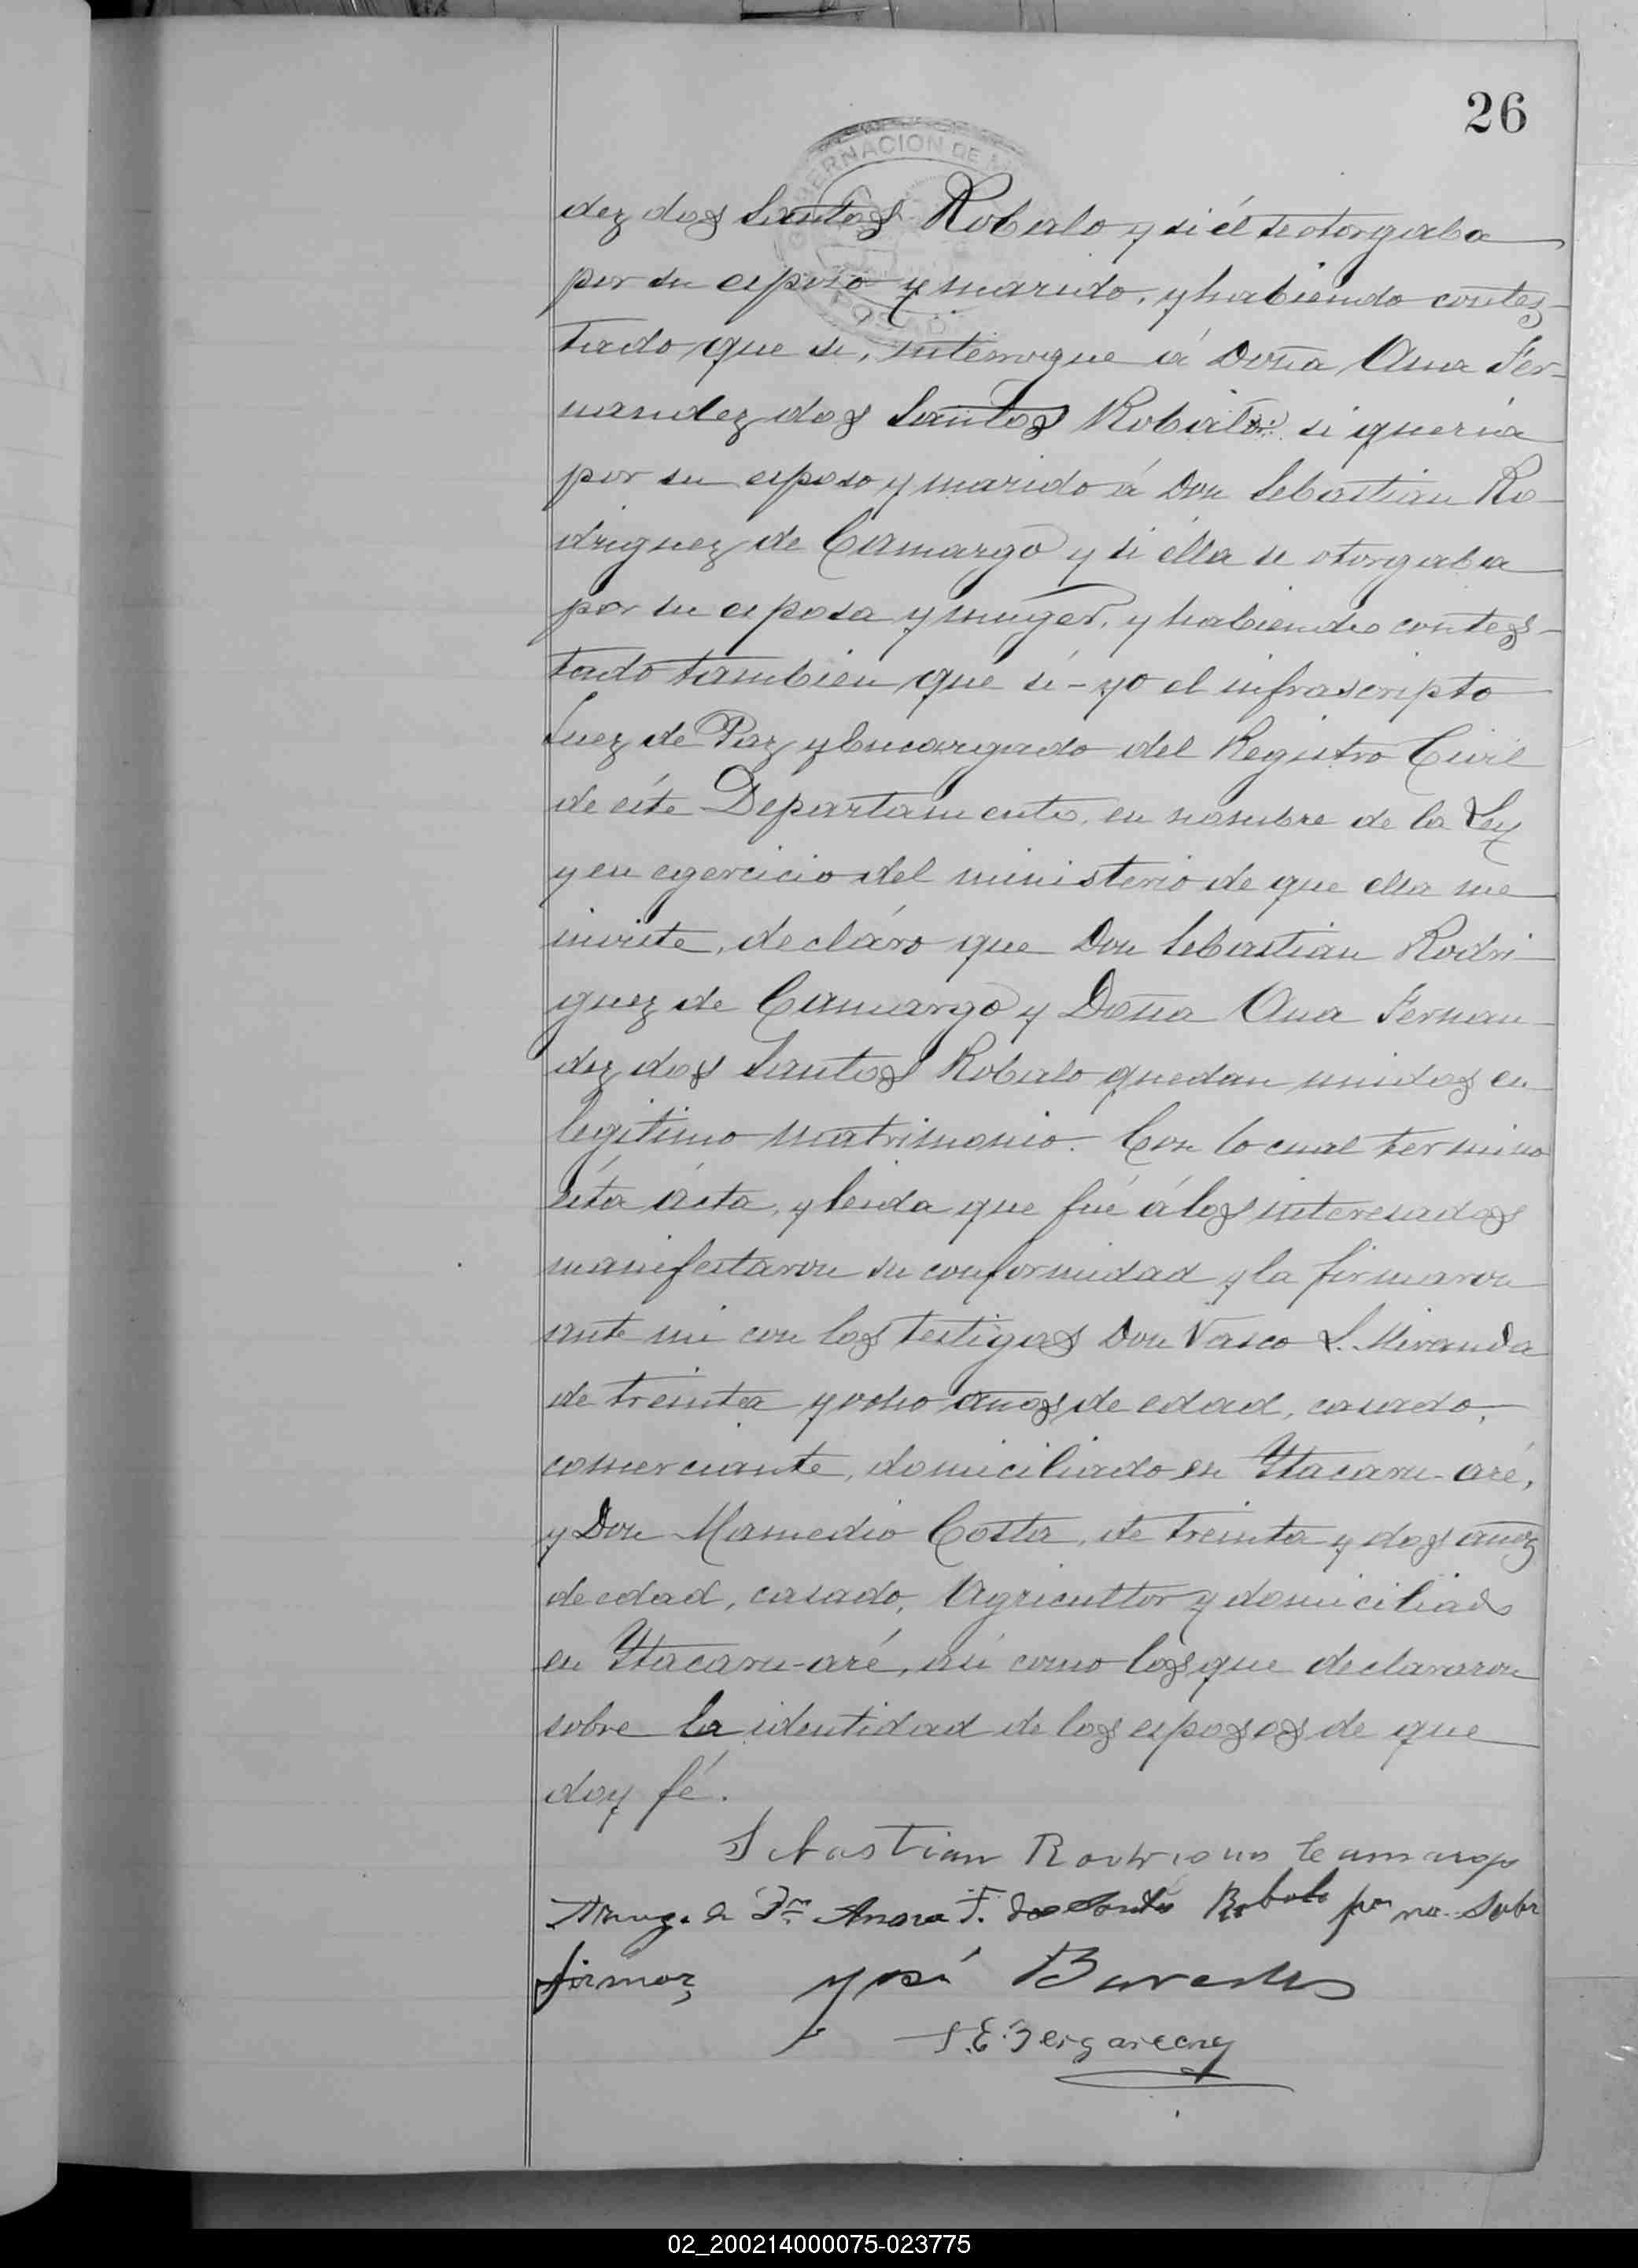 26
GOBERNACION DE
POSADAS
dez dos Santos Robalo y si él se otorgaba
por su esposo y marido, y habiendo contes-
tado que si, interrogue á Doña Ana Fer-
nandez dos Santos Robalo si queria
por su esposo y marido á Don Sebastian Ro-
driguez de Camargo y si élla se otorgaba
por su esposa y muger, y habiendo contes-
tado tambien que si - yo el infrascripto
Juez de Paz y Encargado del Registro Civil
de éste Departamento, en nombre de la Ley
y en egercicio del ministerio de que ella me
inviste, decláro que Don Sebastian Rodri-
guez de Camargo y Doña Ana Fernan-
dez dos Santos Robalo quedan unidos en
legitimo matrimonio. Con lo cual termino
ésta ácta, y leida que fué á los interesados
manifestaron su conformidad y la firmaron
ante mi con los testigos Don Vasco L. Miranda
de treinta y ocho años de edad, casado,
comerciante, domiciliado en Ytacaru-aré,
y Don Mamedio Costa, de treinta y dos años
de edad, casado, Agricultor y domiciliado
en Ytacaru-aré, así como los que declararon
sobre la identidad de los esposos de que
doy fé.
Sebastian Rodrigues Camargo
Aruego de Dña Anna F. dos Santos Robalo por no saber
firmar
02_200214000075-023775